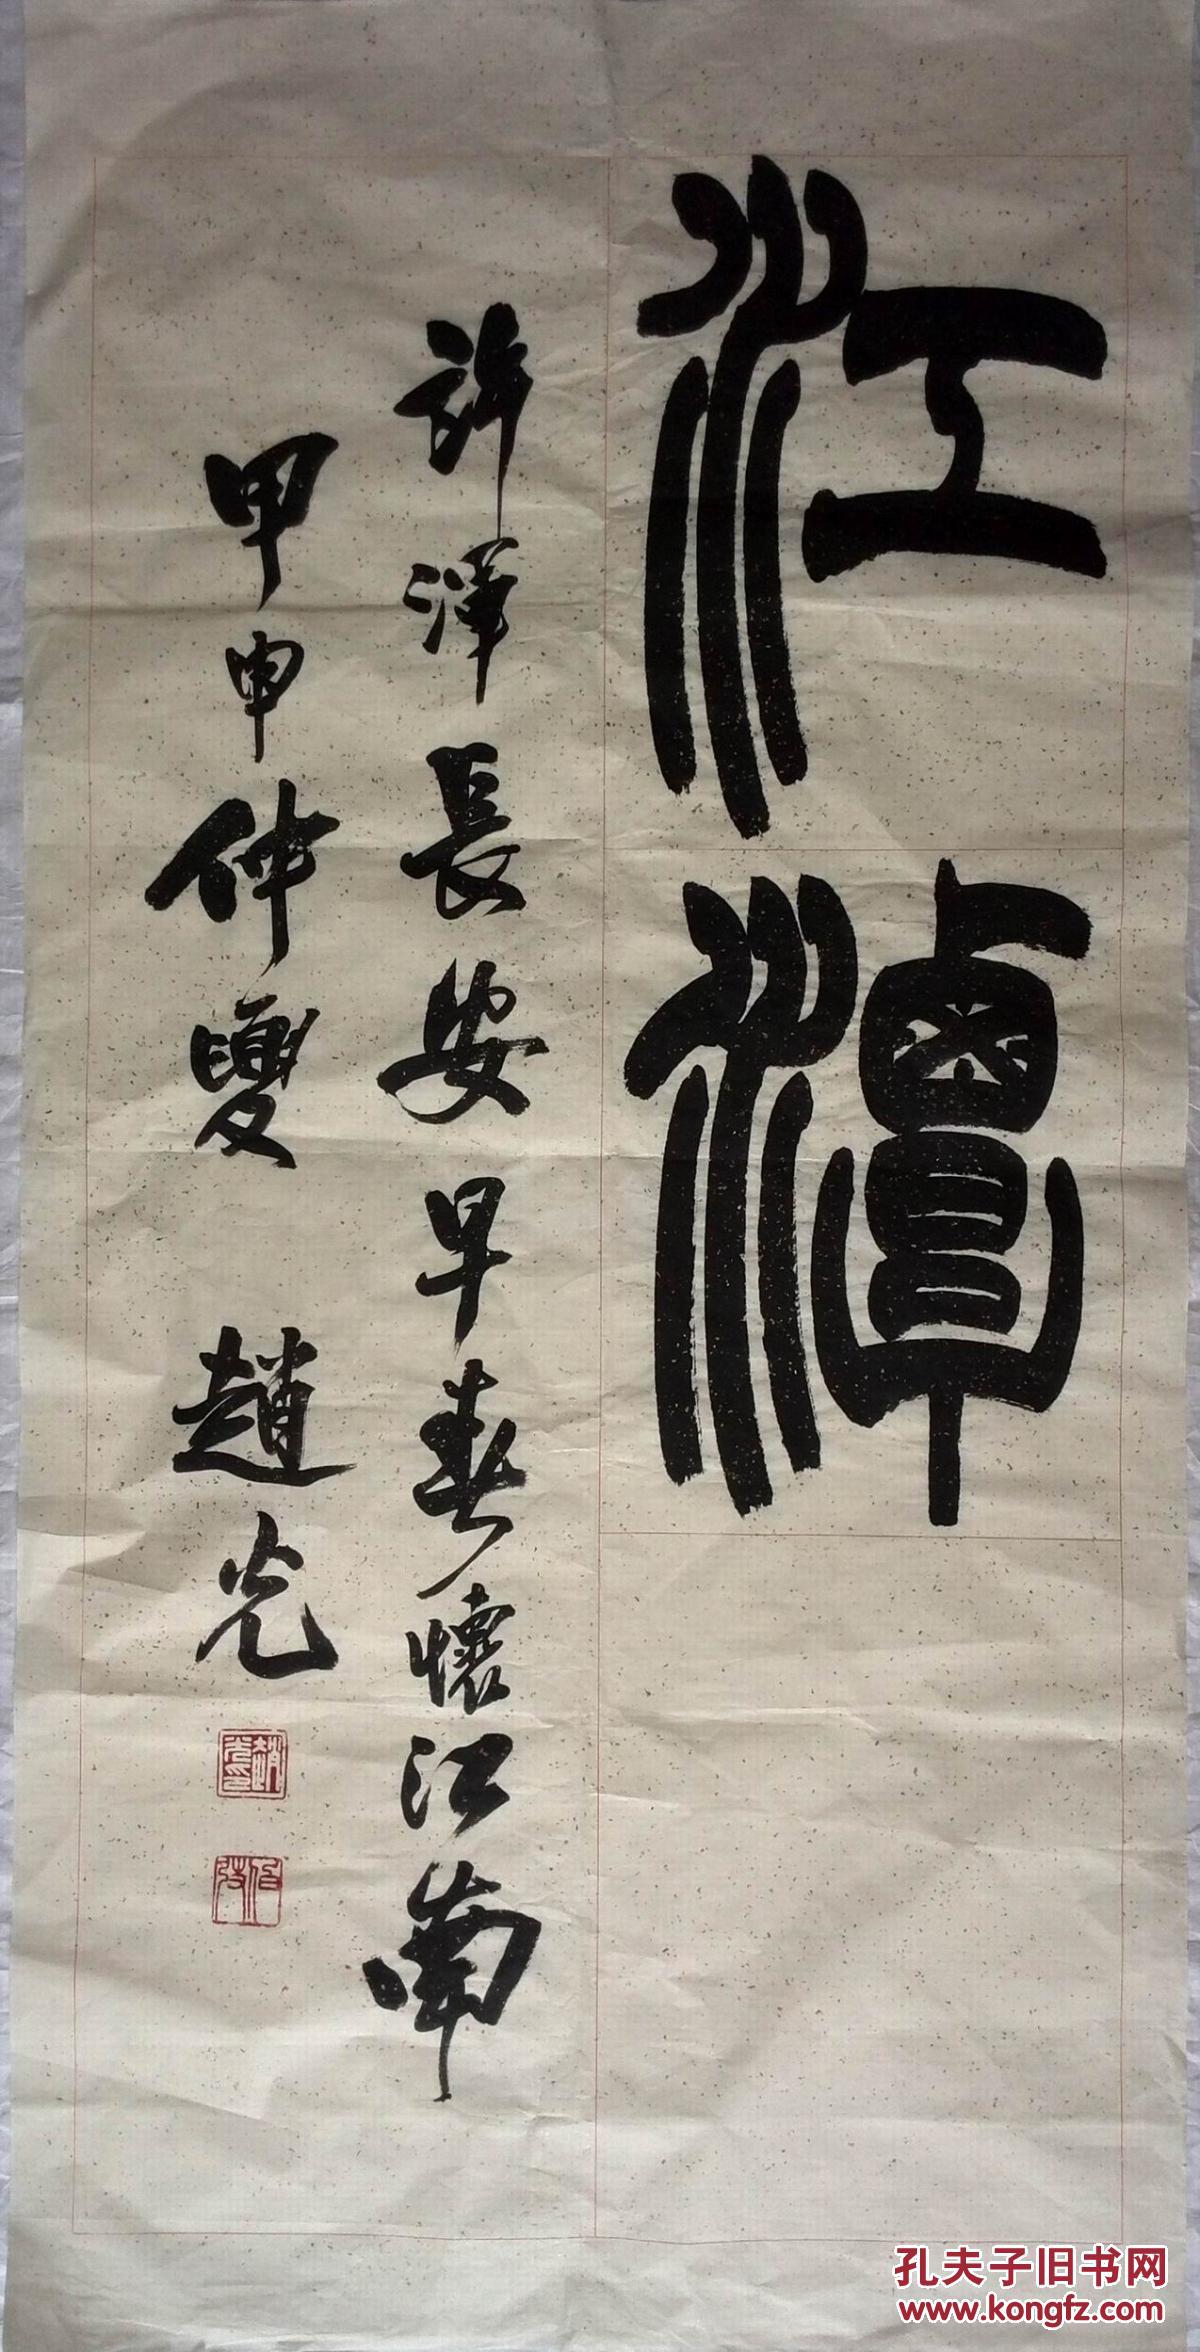 江潭
許渾長安早春懷江南
甲申仲夏 趙光
孔夫子旧书网
www.kongfz.com